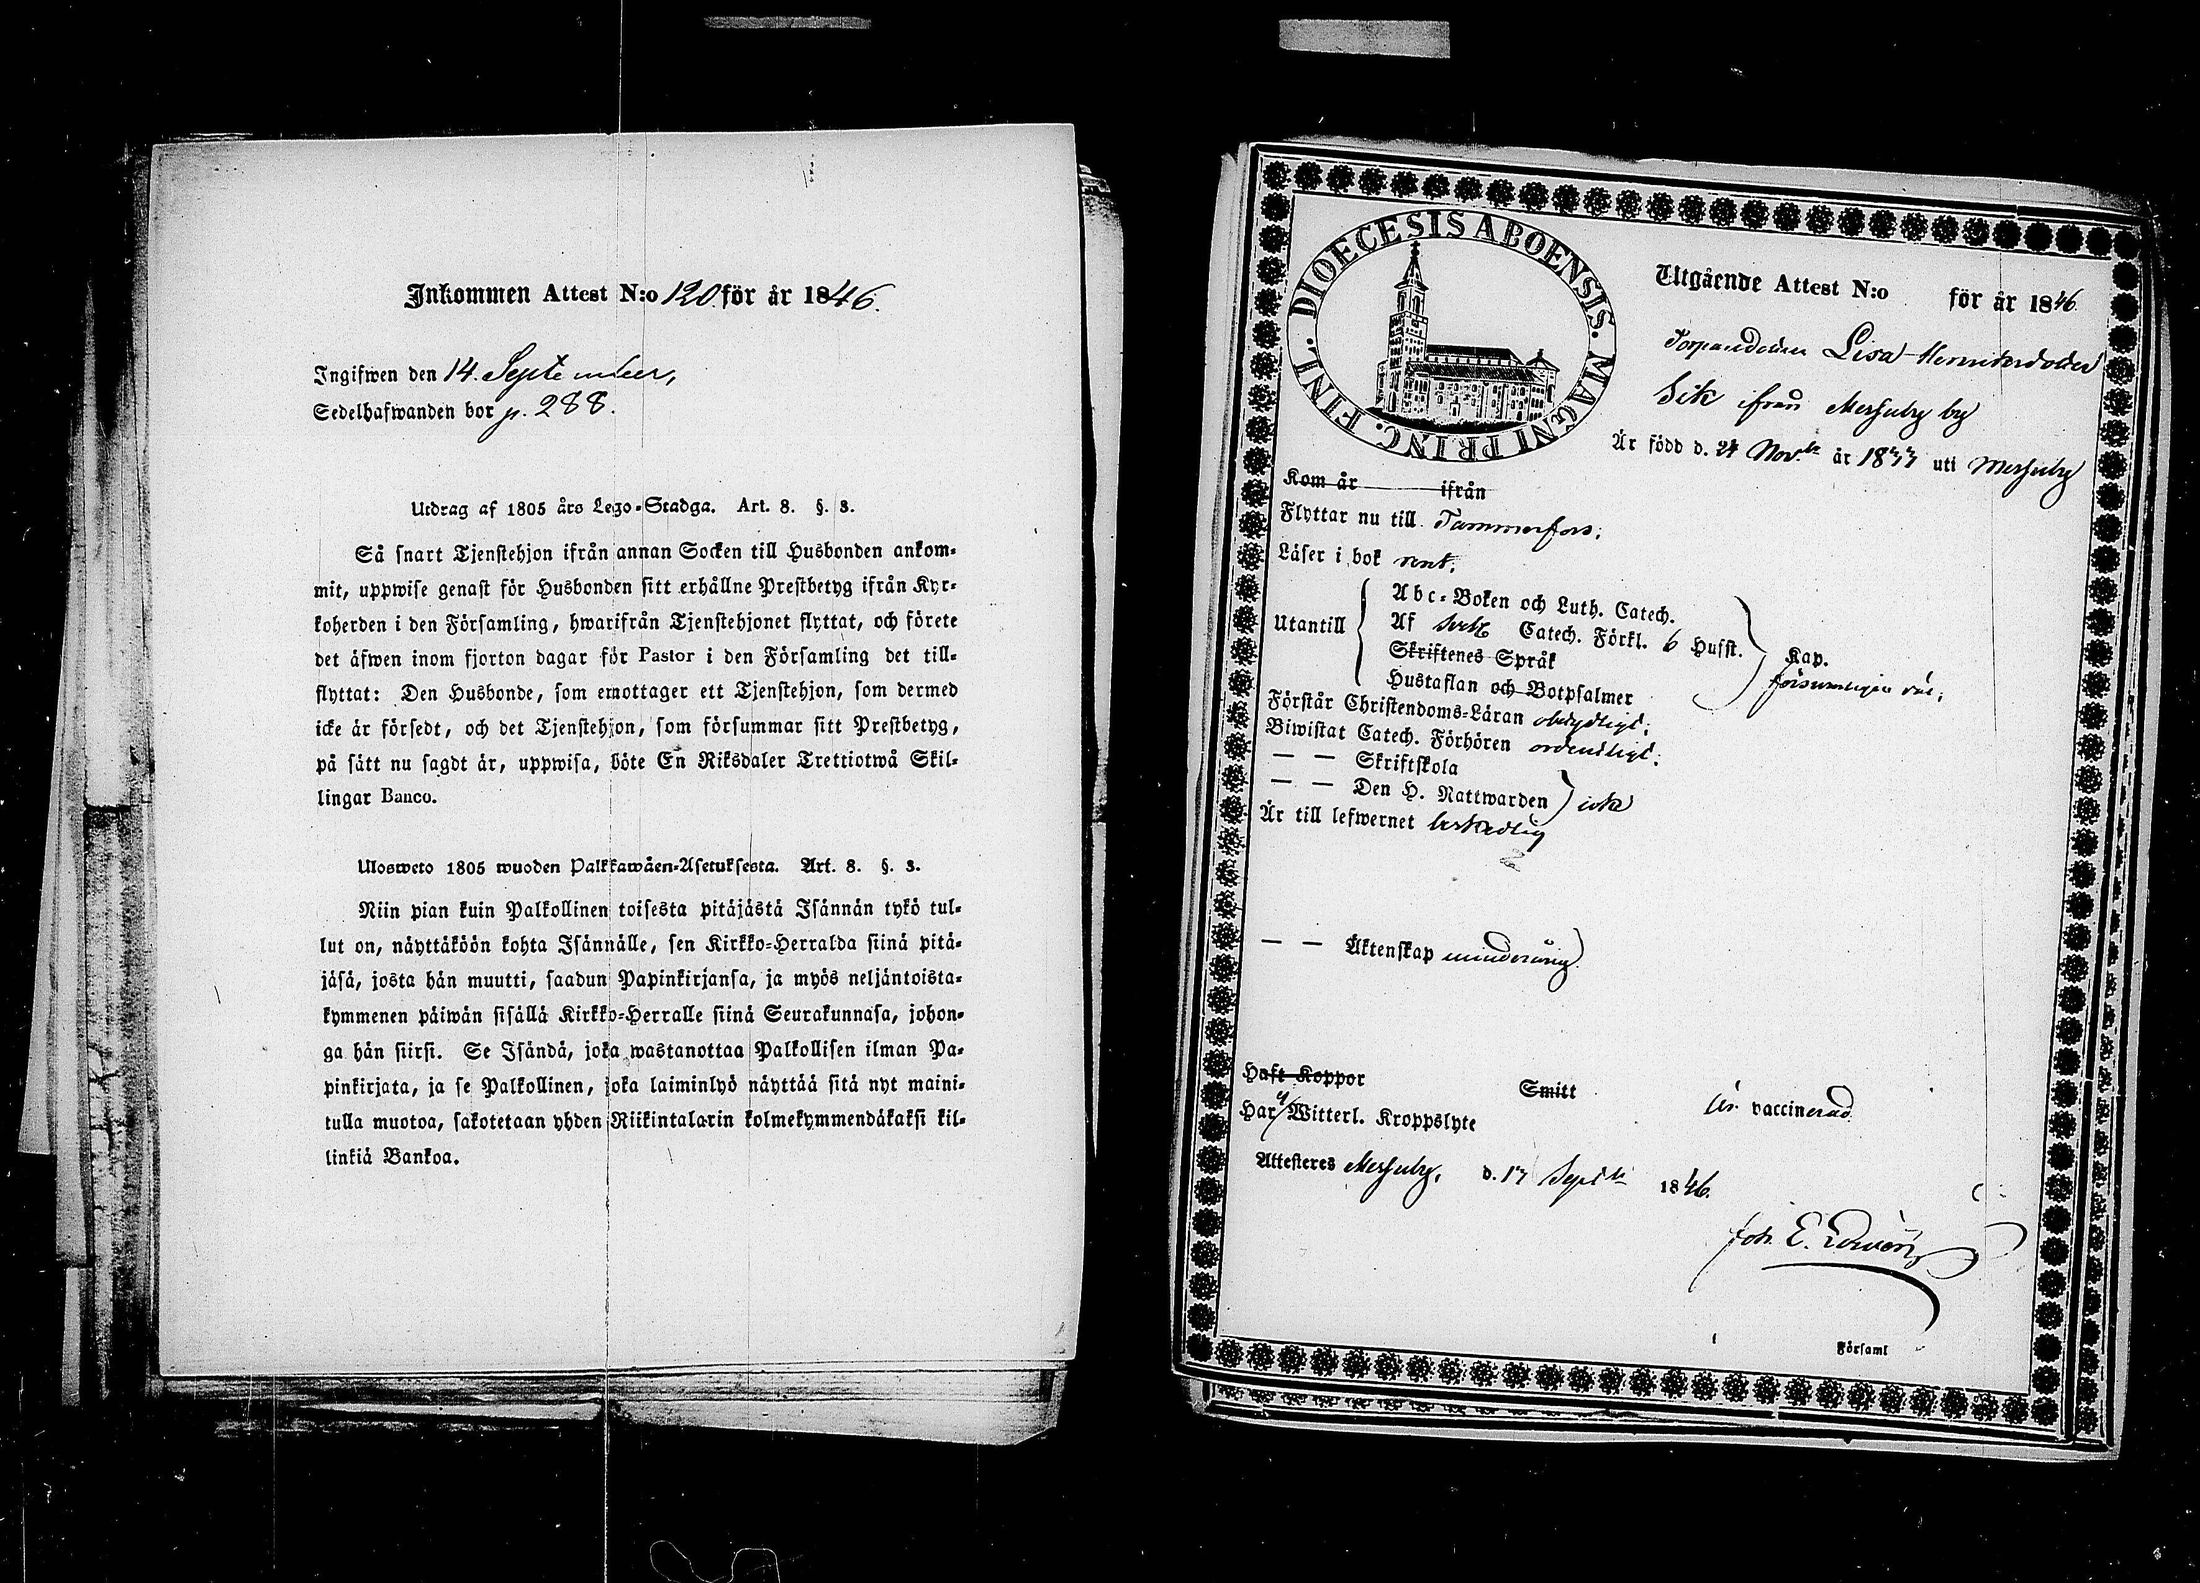 Inkommen Attest N:o 120 för år 1846.
Ingifwen den 14. September,
Sedelhafwanden bor p. 288.
Utdrag af 1805 års Lego-Stadga. Art. 8. §. 3.
Så snart Tjenstehjon ifrån annan Socken till Husbonden ankom-
mit, uppwise genast för Husbonden sitt erhållne Prestbetyg ifrån Kyr-
koherden i den Församling, hwarifrån Tjenstehjonet flyttat, och förete
det äfwen inom fjorton dagar för Pastor i den Församling det till-
flyttat: Den Husbonde, som emottager ett Tjenstehjon, som dermed
icke är försedt, och det Tjenstehjon, som försummar sitt Prestbetyg,
på sätt nu sagdt är, uppwisa, böte En Riksdaler Trettiotwå Skil-
lingar Banco.
Ulosweto 1805 wuoden Palkkawäen-Asetuksesta. Art. 8. §. 3.
Niin pian kuin Palkollinen toisesta pitäjästä Isännän tykö tul-
lut on, näyttäköön kohta Isännälle, sen Kirkko-Herralda siinä pitä-
jäsä, josta hän muutti, saadun Papinkirjansa, ja myös neljäntoista-
kymmenen päiwän sisällä Kirkko-Herralle siinä Seurakunnasa, johon-
ga hän siirsi. Se Isändä, joka wastanottaa Palkollisen ilman Pa-
pinkirjata, ja se Palkollinen, joka laiminlyö näyttää sitä nyt maini-
tulla muotoa, sakotetaan yhden Riikintalarin kolmekymmendäkaksi kil-
linkiä Bankoa.
DIOECESIS ABOENSIS. MAGNI PRINC. FINL.
Utgående Attest N:o för år 1846.
Lisa
Sik ifrån by
Är född d. 24 Nov. år 1833 uti
Kom år ifrån
Flyttar nu till Tammerfors.
Läser i bok rent.
Utantill
Abc-Boken och Luth. Catech.
Af Catech. Förkl. 6 Husst.
Skriftenes Språk
Hustaflan och Botpsalmer
Kap.
Förstår Christendoms-Läran
Biwistat Catech. Förhören ordentligt.
— — Skriftskola
— — Den H. Nattwarden icke
Är till lefwernet beskedlig
— — Äktenskap minderårig.
Haft Koppor Smitt är vaccinerad.
Har Witterl. Kroppslyte
Attesteres d. 17 Sept. 1846.
Joh. E.
Församl